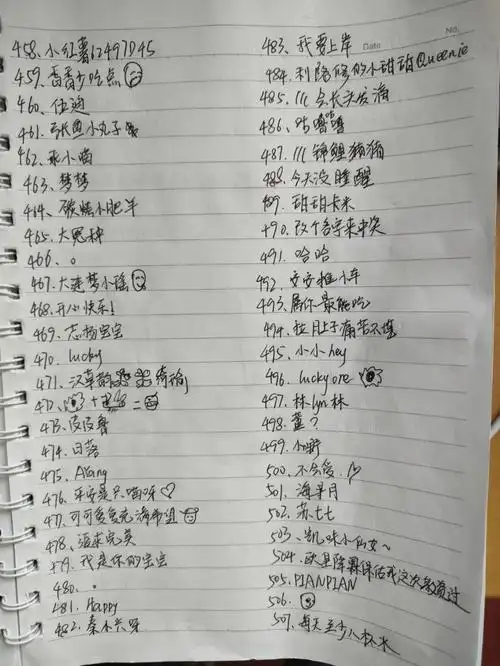 458、小红薯12497D45
459、香香少吃点
460、使迪
461、章鱼小丸子
462、张小喵
463、梦梦
464、碳烤小肥羊
465、大冤种
466、。
467、大连梦小瑶
468、开心快乐!
469、志杨宝宝
470、lucky
471、汉草
472、 + =
473、皮皮鲁
474、日落
475、Axing
476、平安是只喵呀♡
477、可可爱爱充满希望
478、追求完美
479、我是你的宝宝
480、。
481、Happy
482、秦不兴呀
Date
No.
483、我要上岸
484、利路修的小甜甜Queenie
485、///会长头发滴
486、咕噜噜
487、///锦鲤猪猪
488、今天没睡醒
489、甜甜卡米
490、改个名字来中奖
491、哈哈
492、安安推小车
493、属你最能吃
494、拉肚子痛苦不堪
495、小小hey
496、luckyone
497、林lyn林
498、董?
499、小昕
500、不会爱、♡
501、海半月
502、苏七七
503、凯味小仙女~
504、欧皇降霖保佑我这次考资过
505、PIANPIAN
506、
507、每天至少八杯水